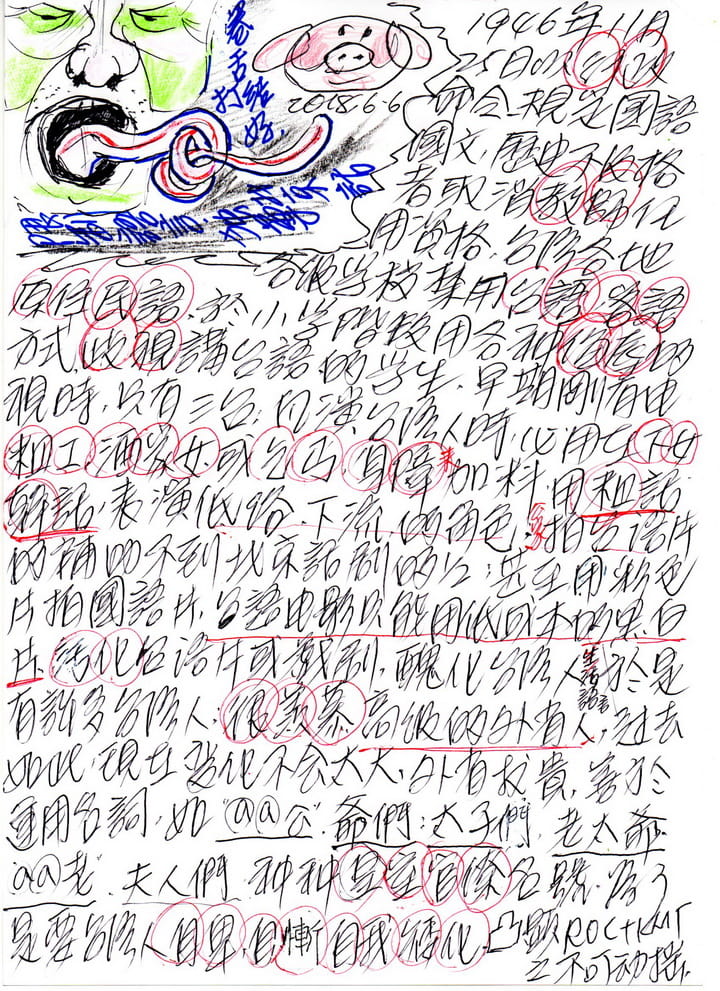 捲舌
打結
好
2018.6.6
1946年11月
25日
命令規定國語
國文,歷史不及格
者取消教師任
用資格,台灣各地
各級学校禁用台語客語
原住民語,於小学階段用各種
方式,歧視講台語的学生,早期剛有电
視時,只有三台,凡演台灣人時,必用
下女
粗工,酒家女或乞丐,身障來加料,用粗話
表演低俗、下流的角色,拍台語片
的補助不到北京話劇的 甚至用彩色
片拍國語片,台語电影只能用低成本的黑白
片,台語片或戲劇,醜化台灣人生活語言於是
有許多台灣人,很羨慕高級的外省人,过去
如此,現在变化不会太大,外省权貴,善於
運用名詞,如"@@公"爺們:太子們,老太爺
"@@老",夫人們,种种皇室官僚名號,為了
是要台灣人自卑,自慚,自我矮化,凸顯ROC+KMT
之不可动摇.